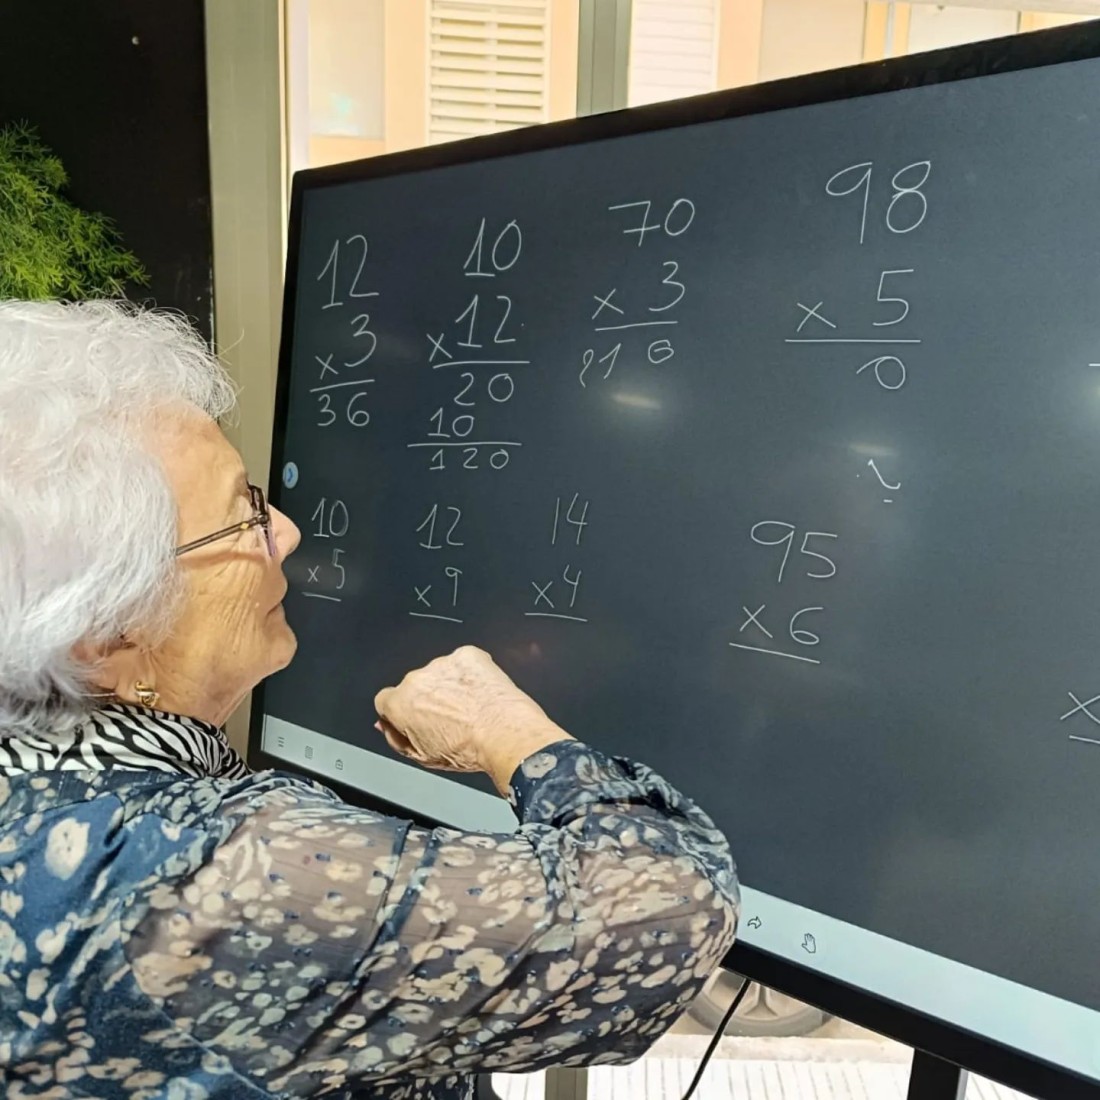 12
x 3
36
10
x 12
20
10
120
70
x 3
210
98
x 5
0
10
x 5
12
x 9
14
x 4
95
x 6
x